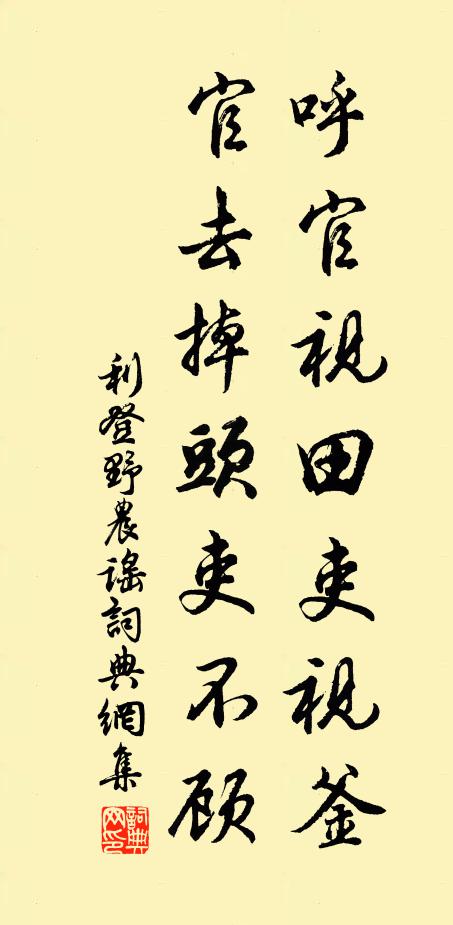 呼官視田吏視釜
官去掉頭吏不顧
利登野農謠詞典網集
詞典網印